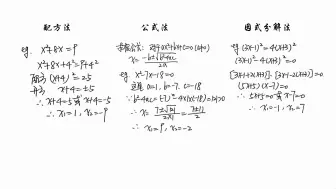 配方法
例. x²+8x=9
x²+8x+4²=9+4²
配方 (x+4)²=25
开方 x+4=±5
∴ x+4=5 或 x+4=-5
∴ x₁=1, x₂=-9
公式法
ax²+bx+c=0(a≠0)
x=(-b±√(b²-4ac))/2a
例. x²-7x-18=0
a=1, b=-7, c=-18
∴ b²-4ac=(-7)²-4×1×(-18)=121>0
∴ x=(7±√121)/(2×1)=(7±11)/2
∴ x₁=9, x₂=-2
因式分解法
例 (3x-1)²=4(x+3)²
(3x-1)²-4(x+3)²=0
[3x-1+2(x+3)]·[3x-1-2(x+3)]=0
(5x+5)(x-7)=0
∴ 5x+5=0 或 x-7=0
∴ x₁=-1, x₂=7